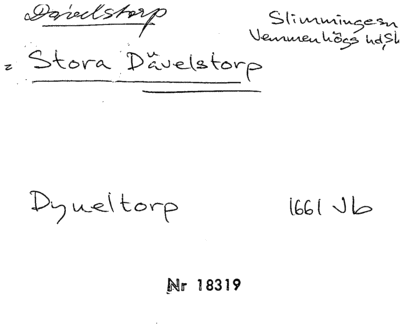 Dävelstorp
Slimminge sn
Vemmenhögs hd, Sk
= Stora Dävelstorp
Dyueltorp 1661 Jb
Nr 18319